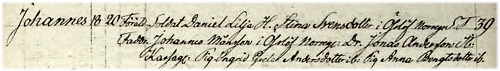 Johannes 18 20 Föräld. Soldat Daniel Lilja H. Stina Svensdotter i Öslöf Norreg. E T 39
Faddr. Johannes Månsson i Öslöf Norreg. Dr. Jonas Andersson ib.
Karsage. Pig. Ingrid Greta Andersdotter ib. Pig. Anna Bengtsdotter ib.